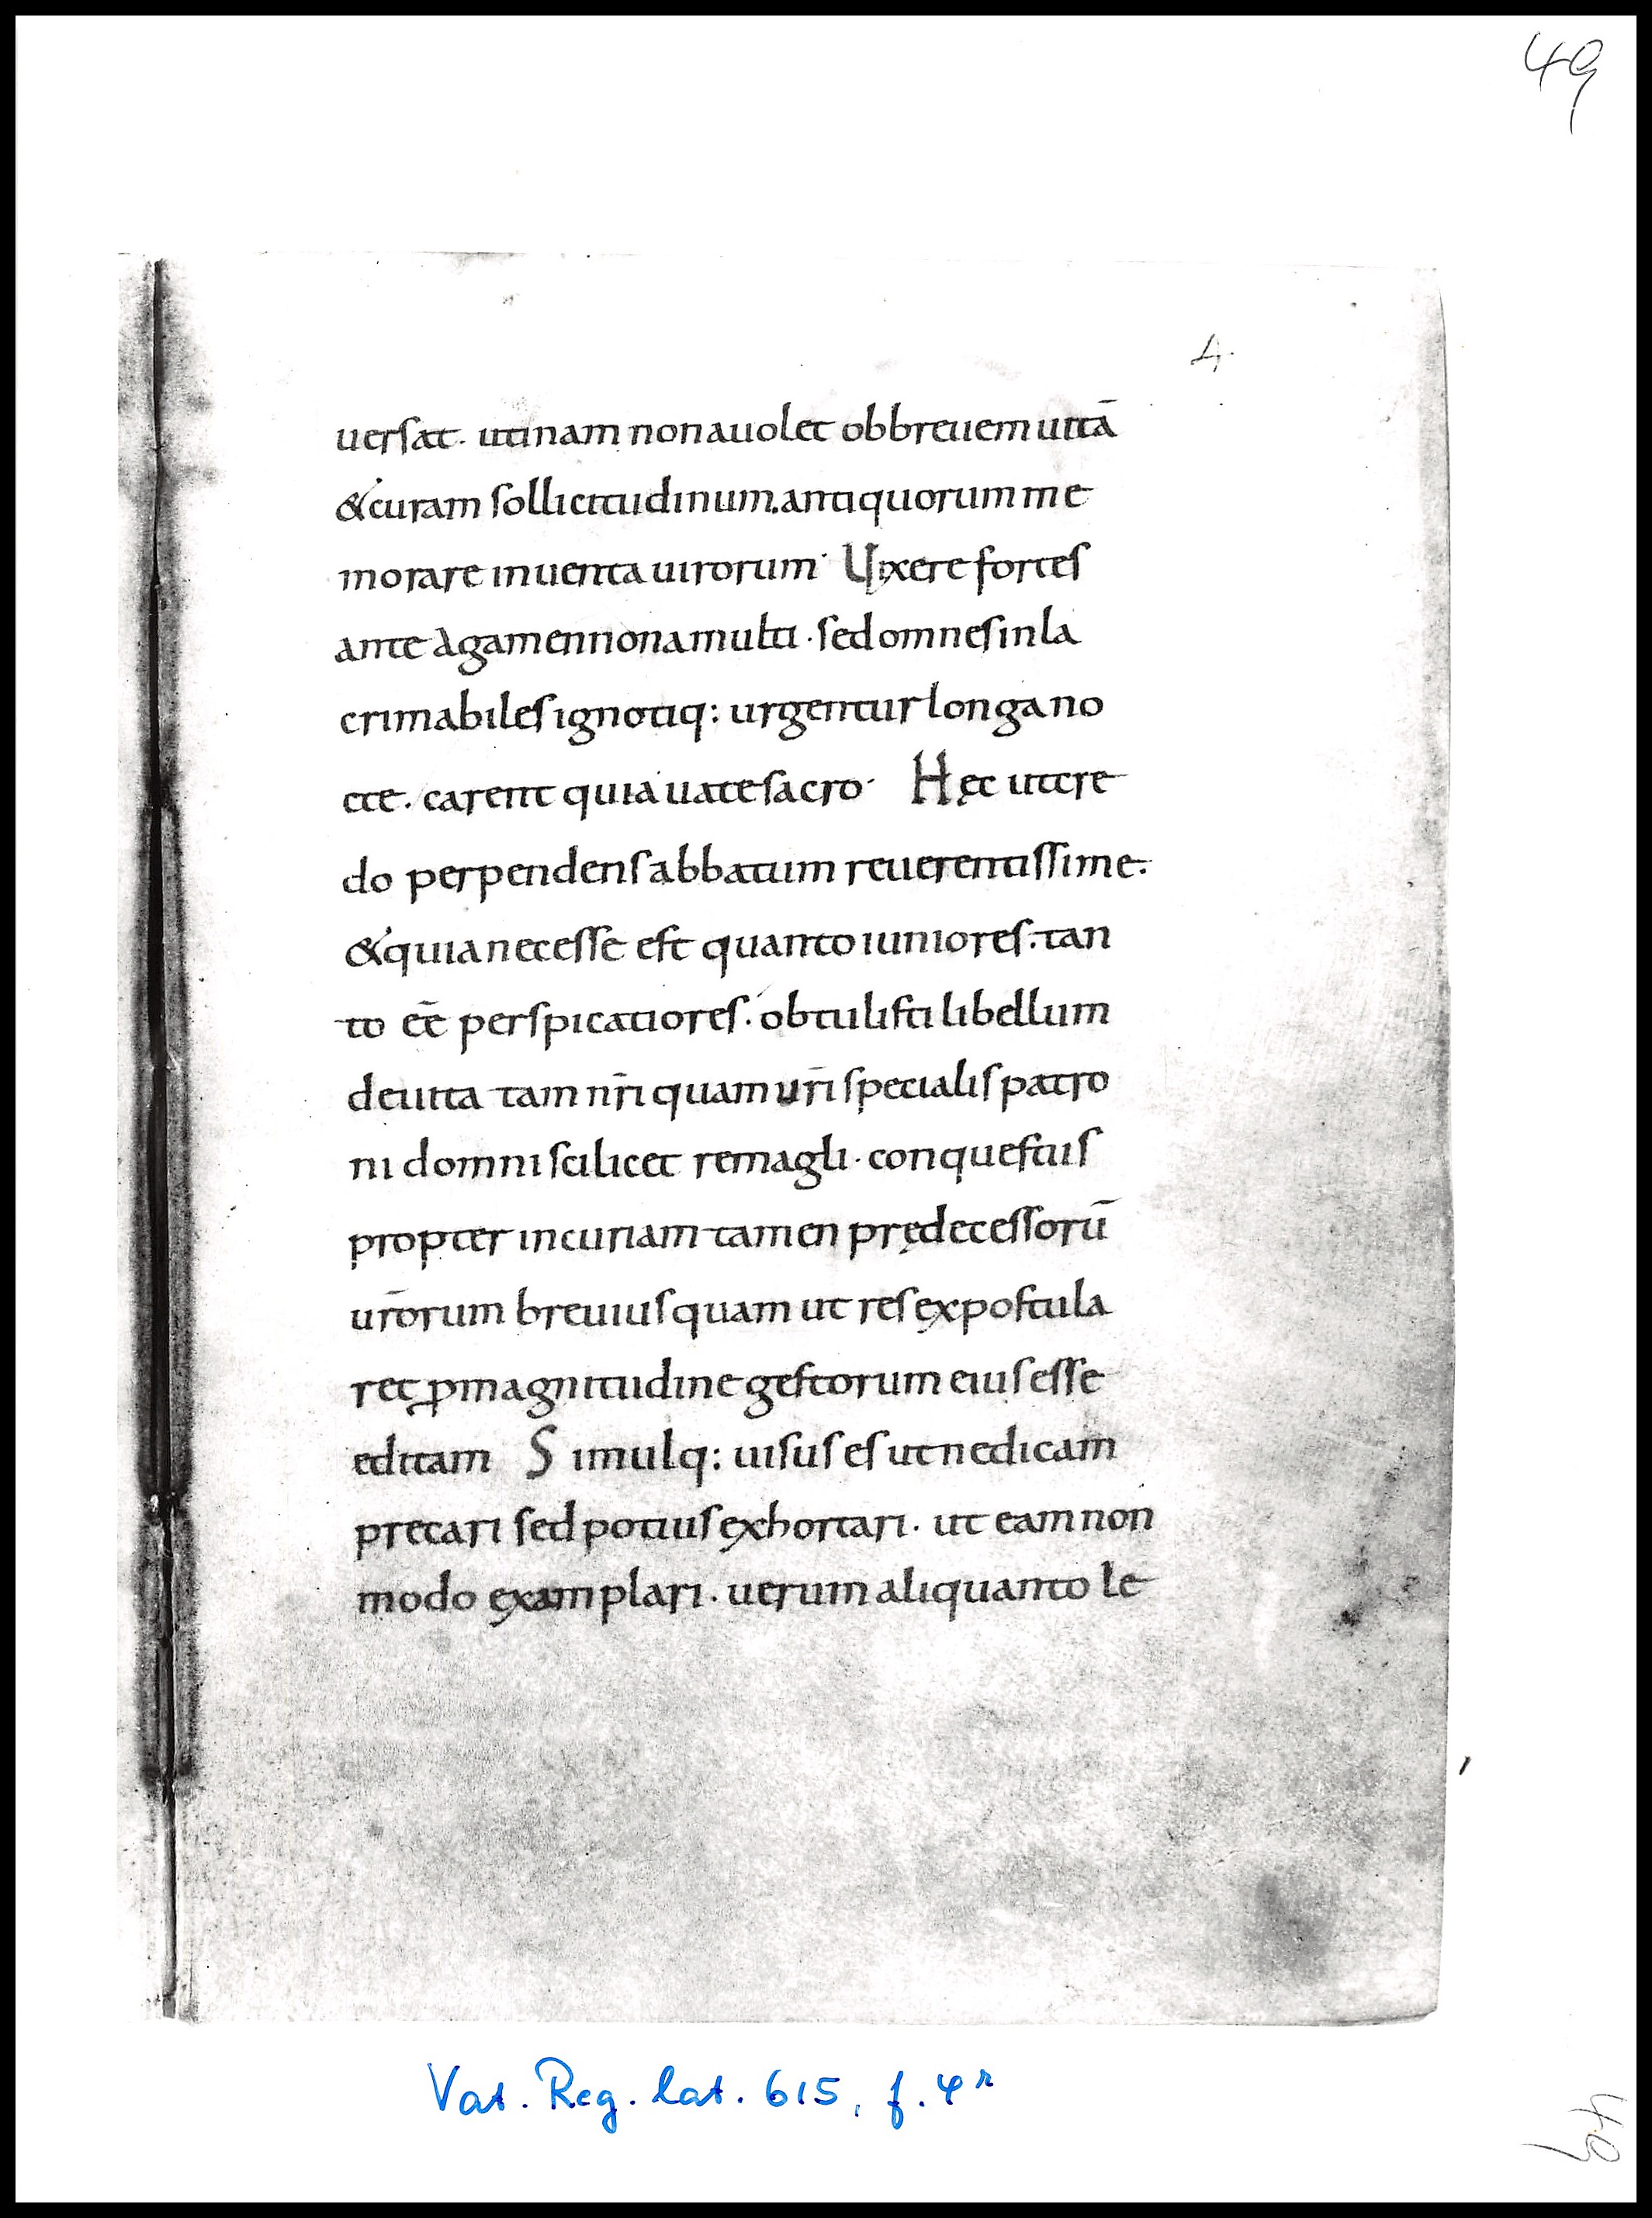 49
4.
uersat. utinam non auolet ob breuem uitā
& curam sollicitudinum. antiquorum me
morare inuenta uirorum. Vixere fortes
ante agamennona multi. sed omnes inla
crimabiles ignotiq: urgentur longa no
cte. carent quia uate sacro. Hęc ut cre
do perpendens abbatum reuerentissime.
& quia necesse est quanto iuniores. tan
to eē perspicatiores. obtulisti libellum
de uita tam nr̄i quam ur̄i specialis patro
ni domni scilicet remagli. conquestus
propter incuriam tamen prędecessorū
ur̄orum breuius quam ut res expostula
ret ꝓ magnitudine gestorum eius esse
editam Simulq: uisus es ut ne dicam
precari sed potius exhortari. ut eam non
modo examplari. uerum aliquanto le
Vat. Reg. lat. 615, f. 4r
49